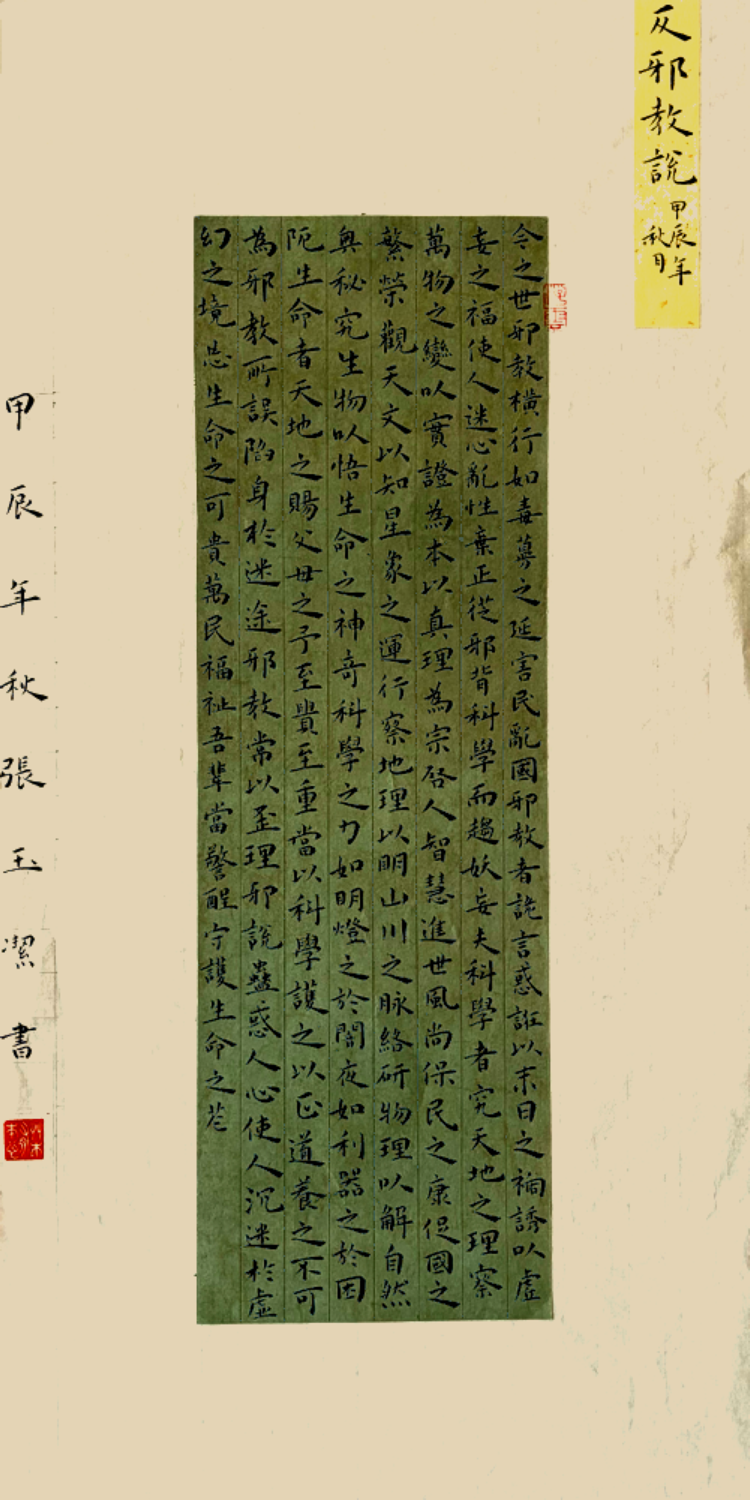 反邪教說
甲辰年
秋月
今之世邪教橫行如毒蔓之延害民亂國邪教者詭言惑誑以末日之禍誘以虛
妄之福使人迷心亂性棄正從邪背科學而趨妖妄夫科學者究天地之理察
萬物之變以實證為本以真理為宗啓人智慧進世風尚保民之康促國之
繁榮觀天文以知星象之運行察地理以明山川之脉絡研物理以解自然
奧秘究生物以悟生命之神奇科學之力如明燈之於闇夜如利器之於困
阨生命者天地之賜父母之予至貴至重當以科學護之以正道養之不可
為邪教所誤陷身於迷途邪教常以歪理邪說蠱惑人心使人沉迷於虛
幻之境忽生命之可貴萬民福祉吾輩當警醒守護生命之花
甲辰年秋張玉潔書